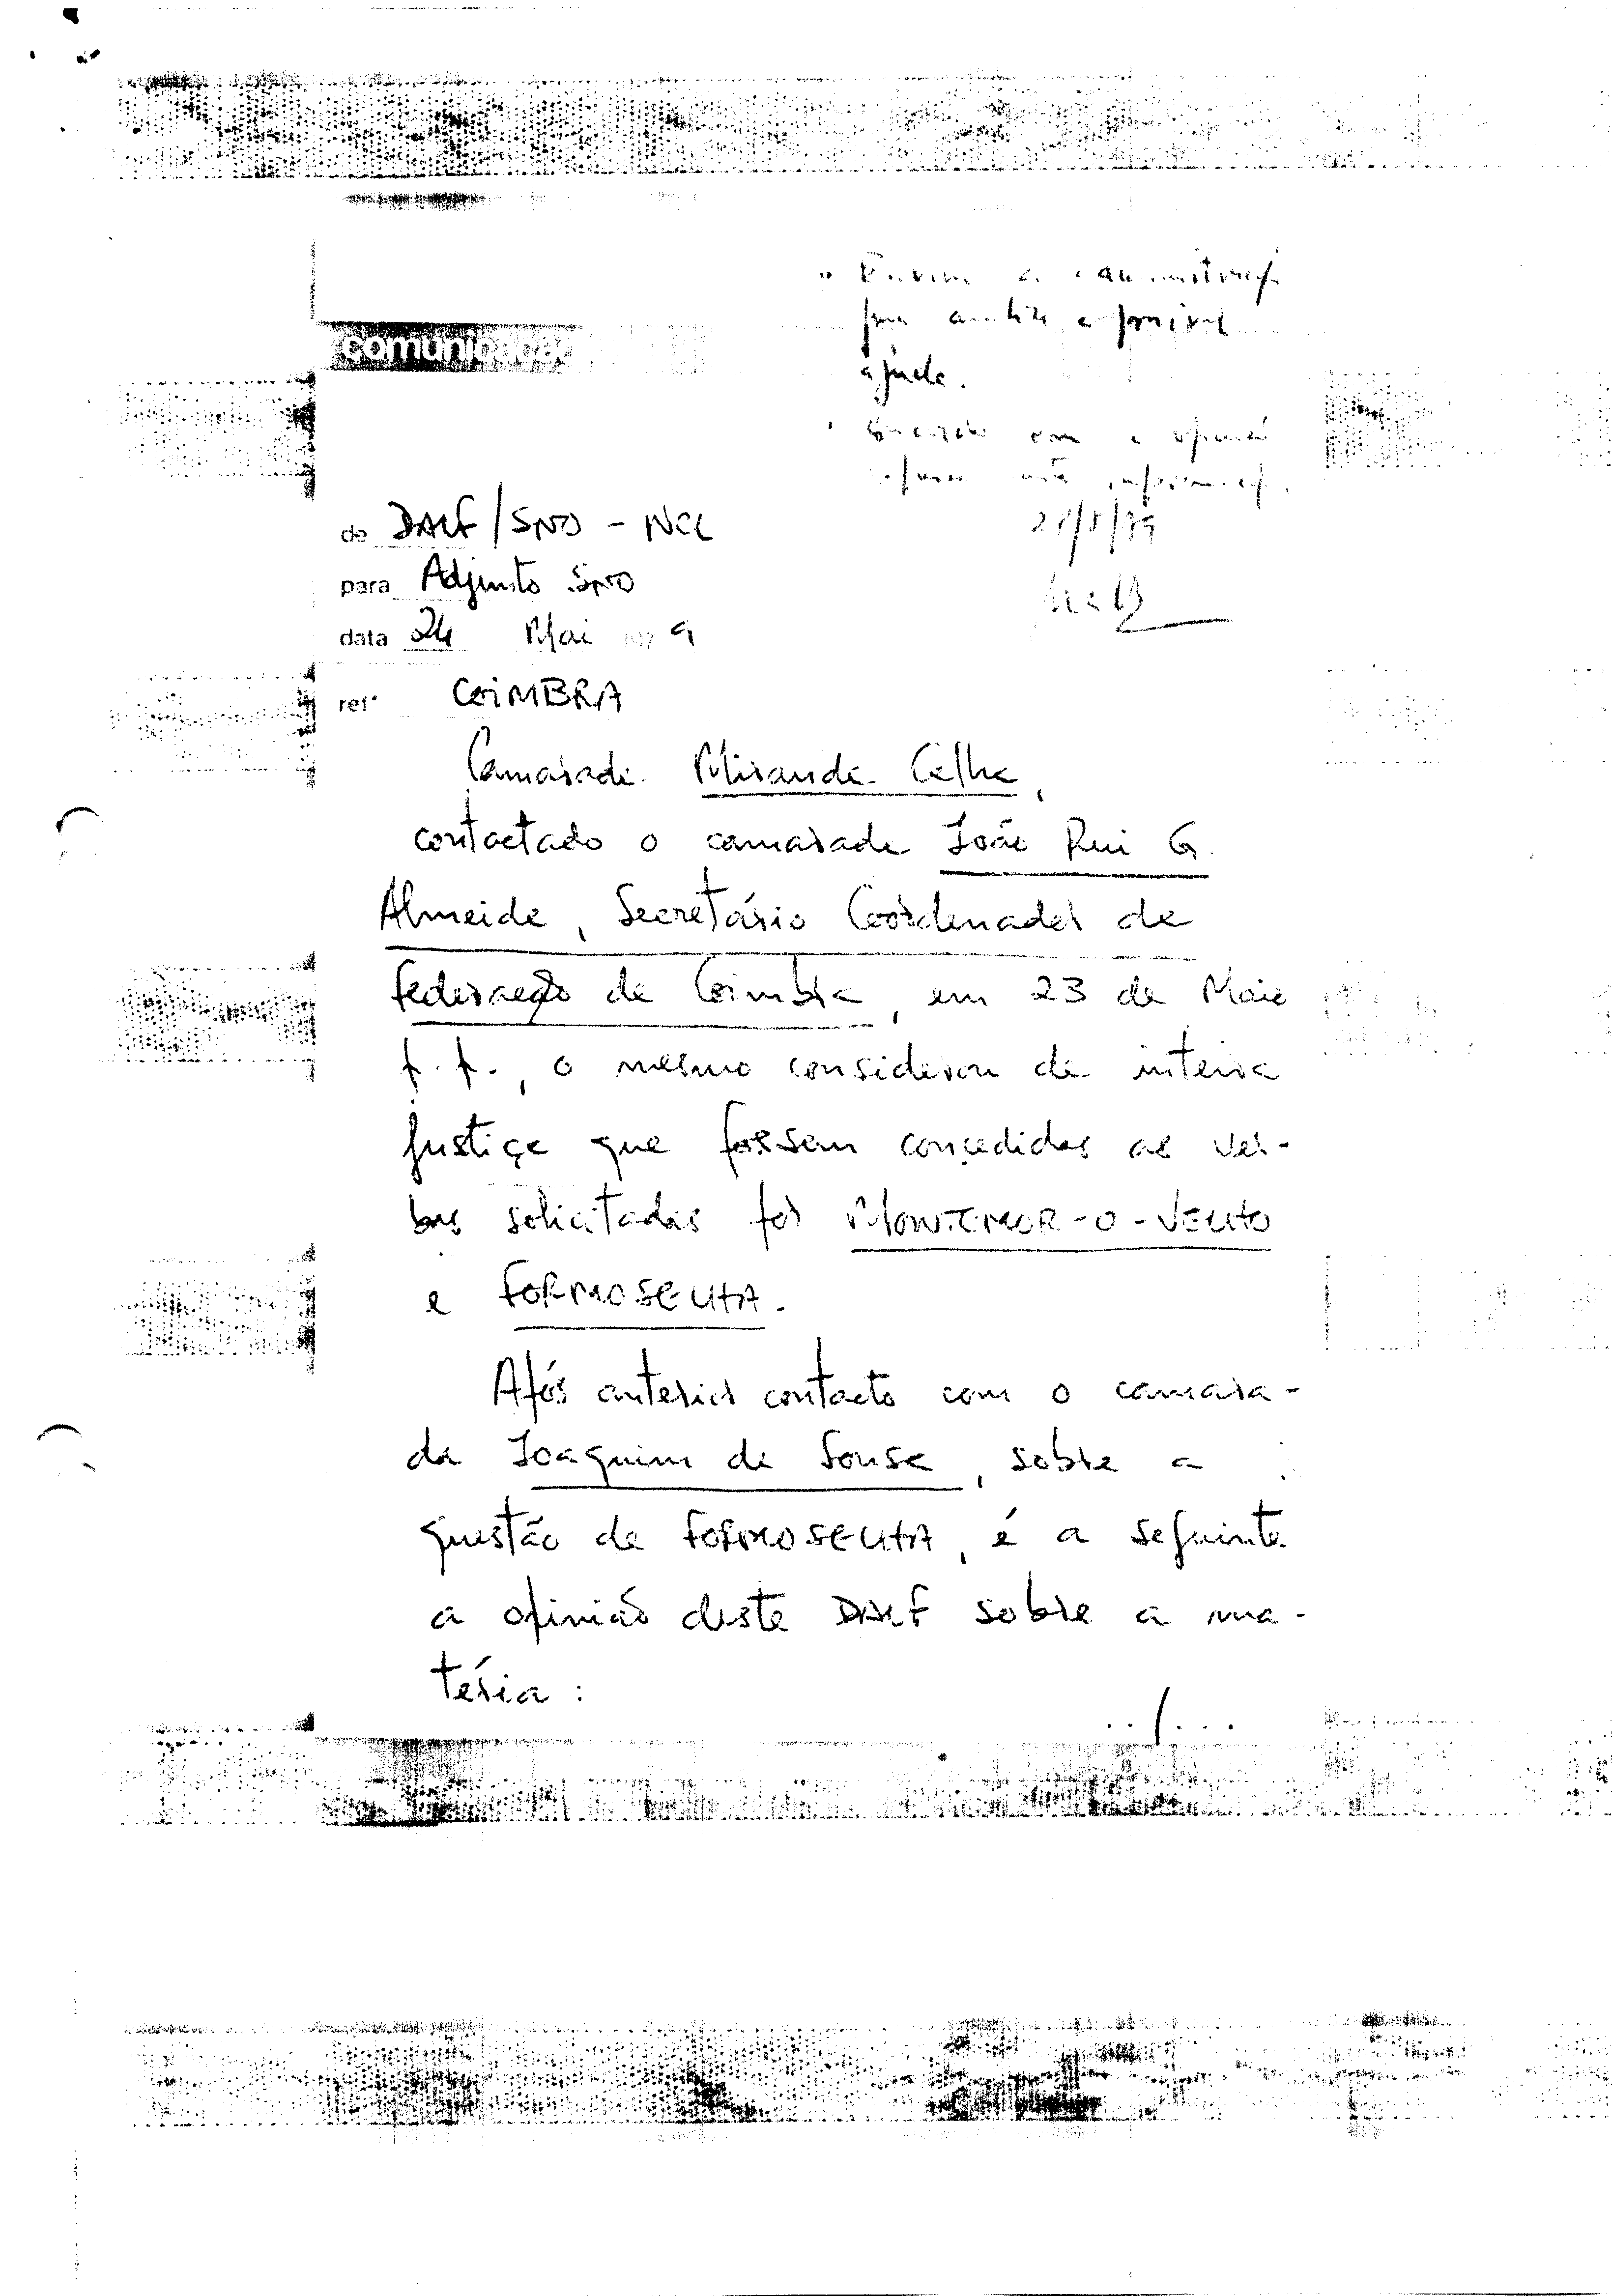 comunicação
ajude.
de DALF/SNO - NCL
para Adjunto SNO
data 24 Mai 1979
ref. COIMBRA
Camarada Miranda Calha,
contactado o camarada João Rui G.
Almeida, Secretário Coordenador da
federação de Coimbra, em 23 de Maio
p.p., o mesmo considerou de inteira
justiça que fossem concedidas as ver-
bas solicitadas por MONTEMOR-O-VELHO
e FORMOSELHA.
Após anterior contacto com o camara-
da Joaquim de Sousa, sobre a
questão de FORMOSELHA, é a seguinte
a opinião deste DALF sobre a ma-
téria:
../...